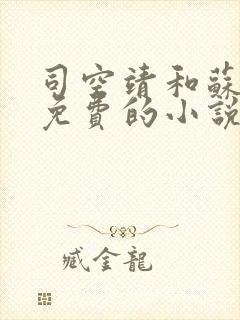 司空靖和蘇
免費的小說
臧金龍